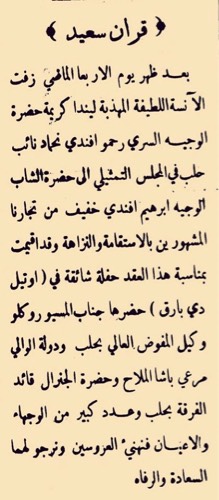 ﴿ قران سعيد ﴾
بعد ظهر يوم الاربعا الماضي زفت
الآنسة اللطيفة المهذبة ليندا كريمة حضرة
الوجيه السري رحمو افندي نحاد نائب
حلب في المجلس التمثيلي الى حضرة الشاب
الوجيه ابرهيم افندي خفيف من تجارنا
المشهورين بالاستقامة والنزاهة وقد اقيمت
بمناسبة هذا العقد حفلة شائقة في ( اوتيل
دي بارق ) حضرها جناب المسيو روكلو
وكيل المفوض العالي بحلب ودولة الوالي
مرعي باشا الملاح وحضرة الجنرال قائد
الفرقة بحلب وعدد كبير من الوجهاء
والاعيان فنهنيء العروسين ونرجو لهما
السعادة والرفاه